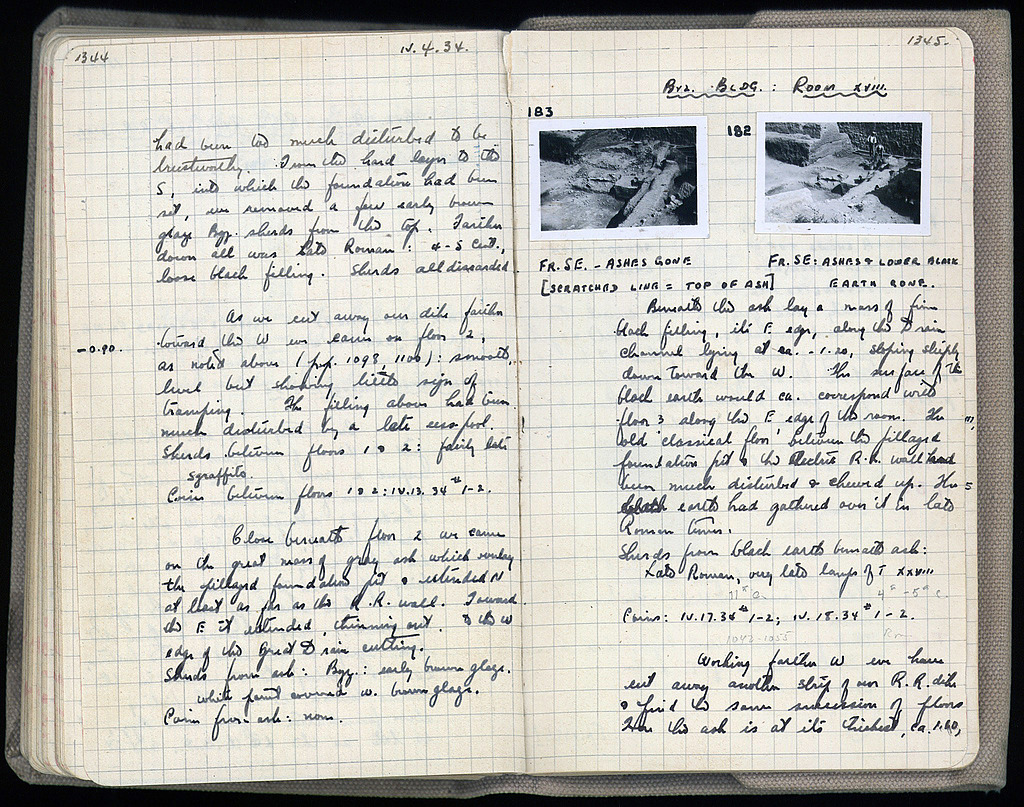 1344
IV.4.34.
had been too much disturbed to be
trustworthy. From the hard layer to the
S, into which the foundation had been
set, we removed a few early brown
glaze Byz. sherds from the top. Farther
down all was Late Roman: 4-5 Cent.,
loose black filling. Sherds all discarded
As we cut away our dike farther
-0.90. toward the W we came on floor 2,
as noted above (pp. 1093, 1100): smooth,
level but showing little sign of
tramping. The filling above had been
much disturbed by a late cesspool.
Sherds between floors 1 & 2: fairly late
sgraffito.
Coins between floors 1 & 2: IV.13.34 # 1-2.
Close beneath floor 2 we came
on the great mass of gray ash which overlay
the pillaged foundation pit & extended N
at least as far as the R.R. wall. Toward
the E it extended, thinning out, to the W
edge of the Great Drain cutting.
Sherds from ash: Byz.: early brown glaze.
white paint covered w. brown glaze.
Coins from ash: none.
1345.
Byz. Bldg.: Room XVIII.
183
182
FR. SE. - ASHES GONE
[SCRATCHED LINE = TOP OF ASH]
FR. SE: ASHES & LOWER BLACK
EARTH GONE.
Beneath the ash lay a mass of firm
black filling, its E edge, along the Drain
channel lying at ca. -1.20, sloping steeply
down toward the W. The surface of the
black earth would ca. correspond with
floor 3 along the E edge of the room. The
old 'classical floor' between the pillaged
foundation pit & the Electric R.R. wall had
been much disturbed & chewed up. The
earth had gathered over it in late
Roman times.
Sherds from black earth beneath ash:
Late Roman, very late lamps of T XXVIII
11th c. 4th-5th c.
Coins: IV.17.34 # 1-2; IV.18.34 # 1-2.
1042-1055
Working farther W we have
cut away another strip of our R.R. dike
& find the same succession of floors
Here the ash is at its thickest, ca. 1.60,